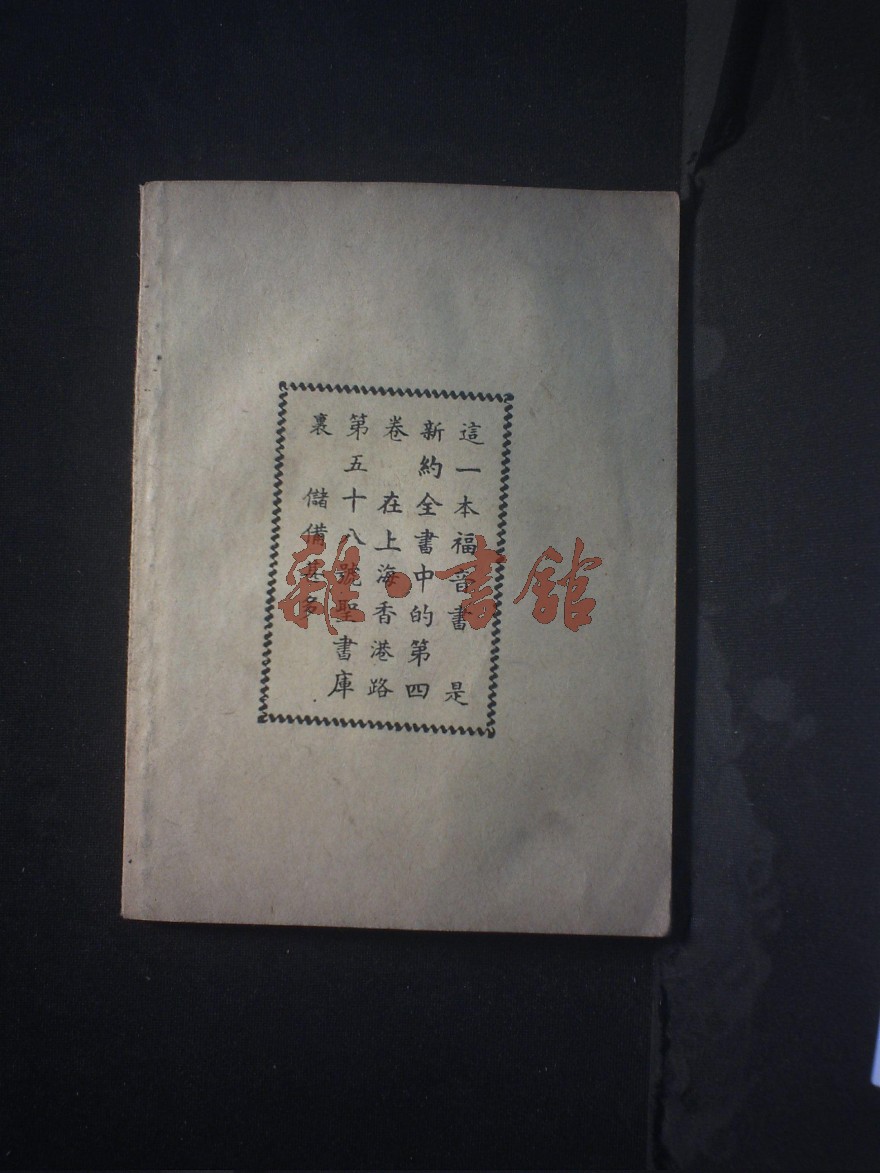 這一本福音書　是
新約全書中的第四
卷　在上海香港路
第五十八號聖書庫
裏　儲備甚多
雜·書館